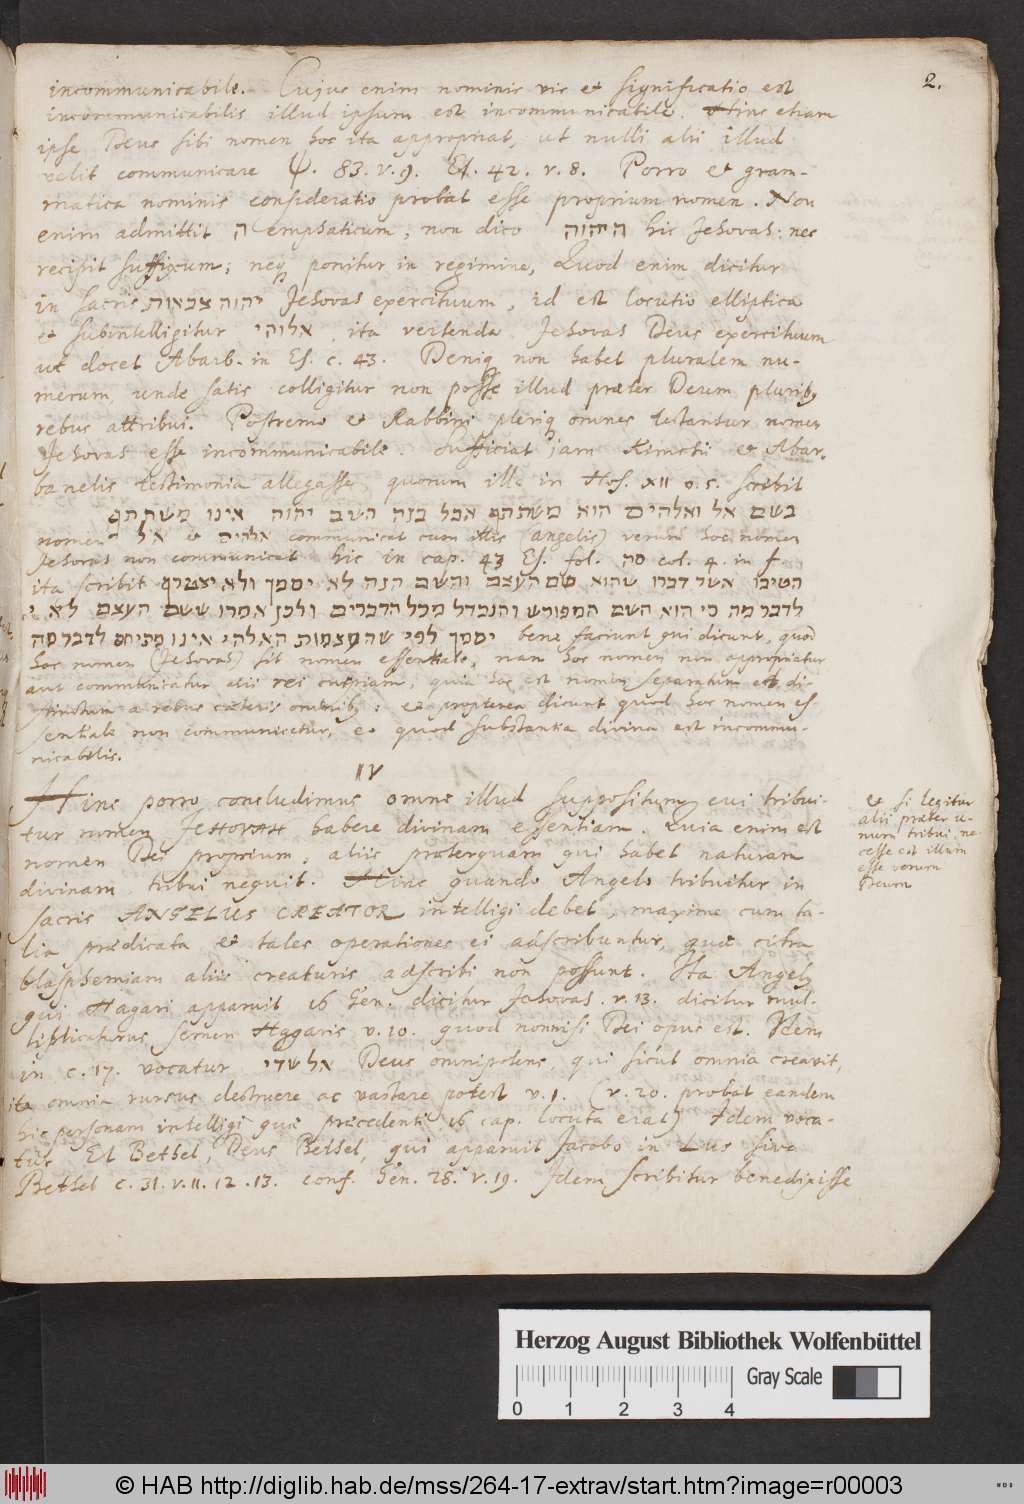 2.
incommunicabile. Cujus enim nominis vis et significatio est
incommunicabilis illud ipsum est incommunicabile. Hinc etiam
ipse Deus sibi nomen hoc ita appropriat, ut nulli alii illud
velit communicare ψ. 83. v. 9. Es. 42. v. 8. Porro et gram-
matica nominis consideratio probat esse proprium nomen. Non
enim admittit ה emphaticum, non dico היהוה hic Jehovas: nec
recipit suffixum; neq ponitur in regimine, Quod enim dicitur
in sacris יהוה צבאות Jehovas exercituum, id est locutio elliptica
et subintelligitur אלוהי ita vertenda Jehovas Deus exercituum
ut docet Abarb. in Es. c. 43. Deniq non habet pluralem nu-
merum, unde satis colligitur non posse illud præter Deum plurib,
rebus attribui. Postremo et Rabbini pleriq omnes testantur nomen
Jehovas esse incommunicabile. Sufficiat jam Kimchii et Abar-
banelis testimonia allegasse, quorum ille in Hos. XII v. 5. scribit
בשם אל ואלהים הוא משתתף אבל בזה השב יהוה אינו משתתף
nomen אל et אלהים communicat cum illis (angelis) verum hoc nomen
Jehovas non communicat hic in cap. 43 Es. fol. סה col. 4. in f
ita scribit הטיבו אשר דברו שהוא שם העצם והשם הנה לא יסמך ולא יצטרף
לדבר מה כי הוא השם המפורש והנבדל מכל הדברים ולכן אמרו ששם העצם לא י
יסמך לפי שהעצמות האלהי אינו מתיחס לדבר מה bene faciunt qui dicunt, quod
hoc nomen (Jehovas) sit nomen essentiale, nam hoc nomen non appropriatur
aut communicatur alii rei cuipiam, quia hoc est nomen separatum et di-
stinctum a rebus cæteris omnib, : et propterea dicunt quod hoc nomen es-
sentiale non communicetur, et quod substantia divina est incommu-
nicabilis.
IV
Hinc porro concludimus omne illud suppositum cui tribui-
tur nomen JEHOVAH habere divinam essentiam. Quia enim est
nomen Dei proprium, aliis præterquam qui habet naturam
divinam tribui nequit. Hinc quando Angelo tribuitur in
sacris ANGELUS CREATOR intelligi debet, maxime cum ta-
lia prædicata et tales operationes ei adscribuntur, quæ citra
blasphemiam aliis creaturis adscribi non possunt. Ita Angelus
qui Hagari apparuit 16 Gen. dicitur Jehovas. v. 13. dicitur mul-
tiplicaturus semen Haggaris v. 10. quod nonnisi Dei opus est. Idem
in c. 17. vocatur אל שדי Deus omnipotens, qui sicut omnia creavit,
ita omnia rursus destruere ac vastare potest v. 1. (v. 20. probat eandem
hic personam intelligi quæ præcedenti 16 cap. locuta erat) Idem voca-
tur El Bethel, Deus Bethel, qui apparuit Jacobo in Lus sive
Bethel c. 31. v. 11. 12. 13. conf. Gen. 28. v. 19. Idem scribitur benedixisse
et si legitur
alii præter u-
num tribui ne-
cesse est illum
esse verum
Deum
Herzog August Bibliothek Wolfenbüttel
Gray Scale
0 1 2 3 4
© HAB http://diglib.hab.de/mss/264-17-extrav/start.htm?image=r00003